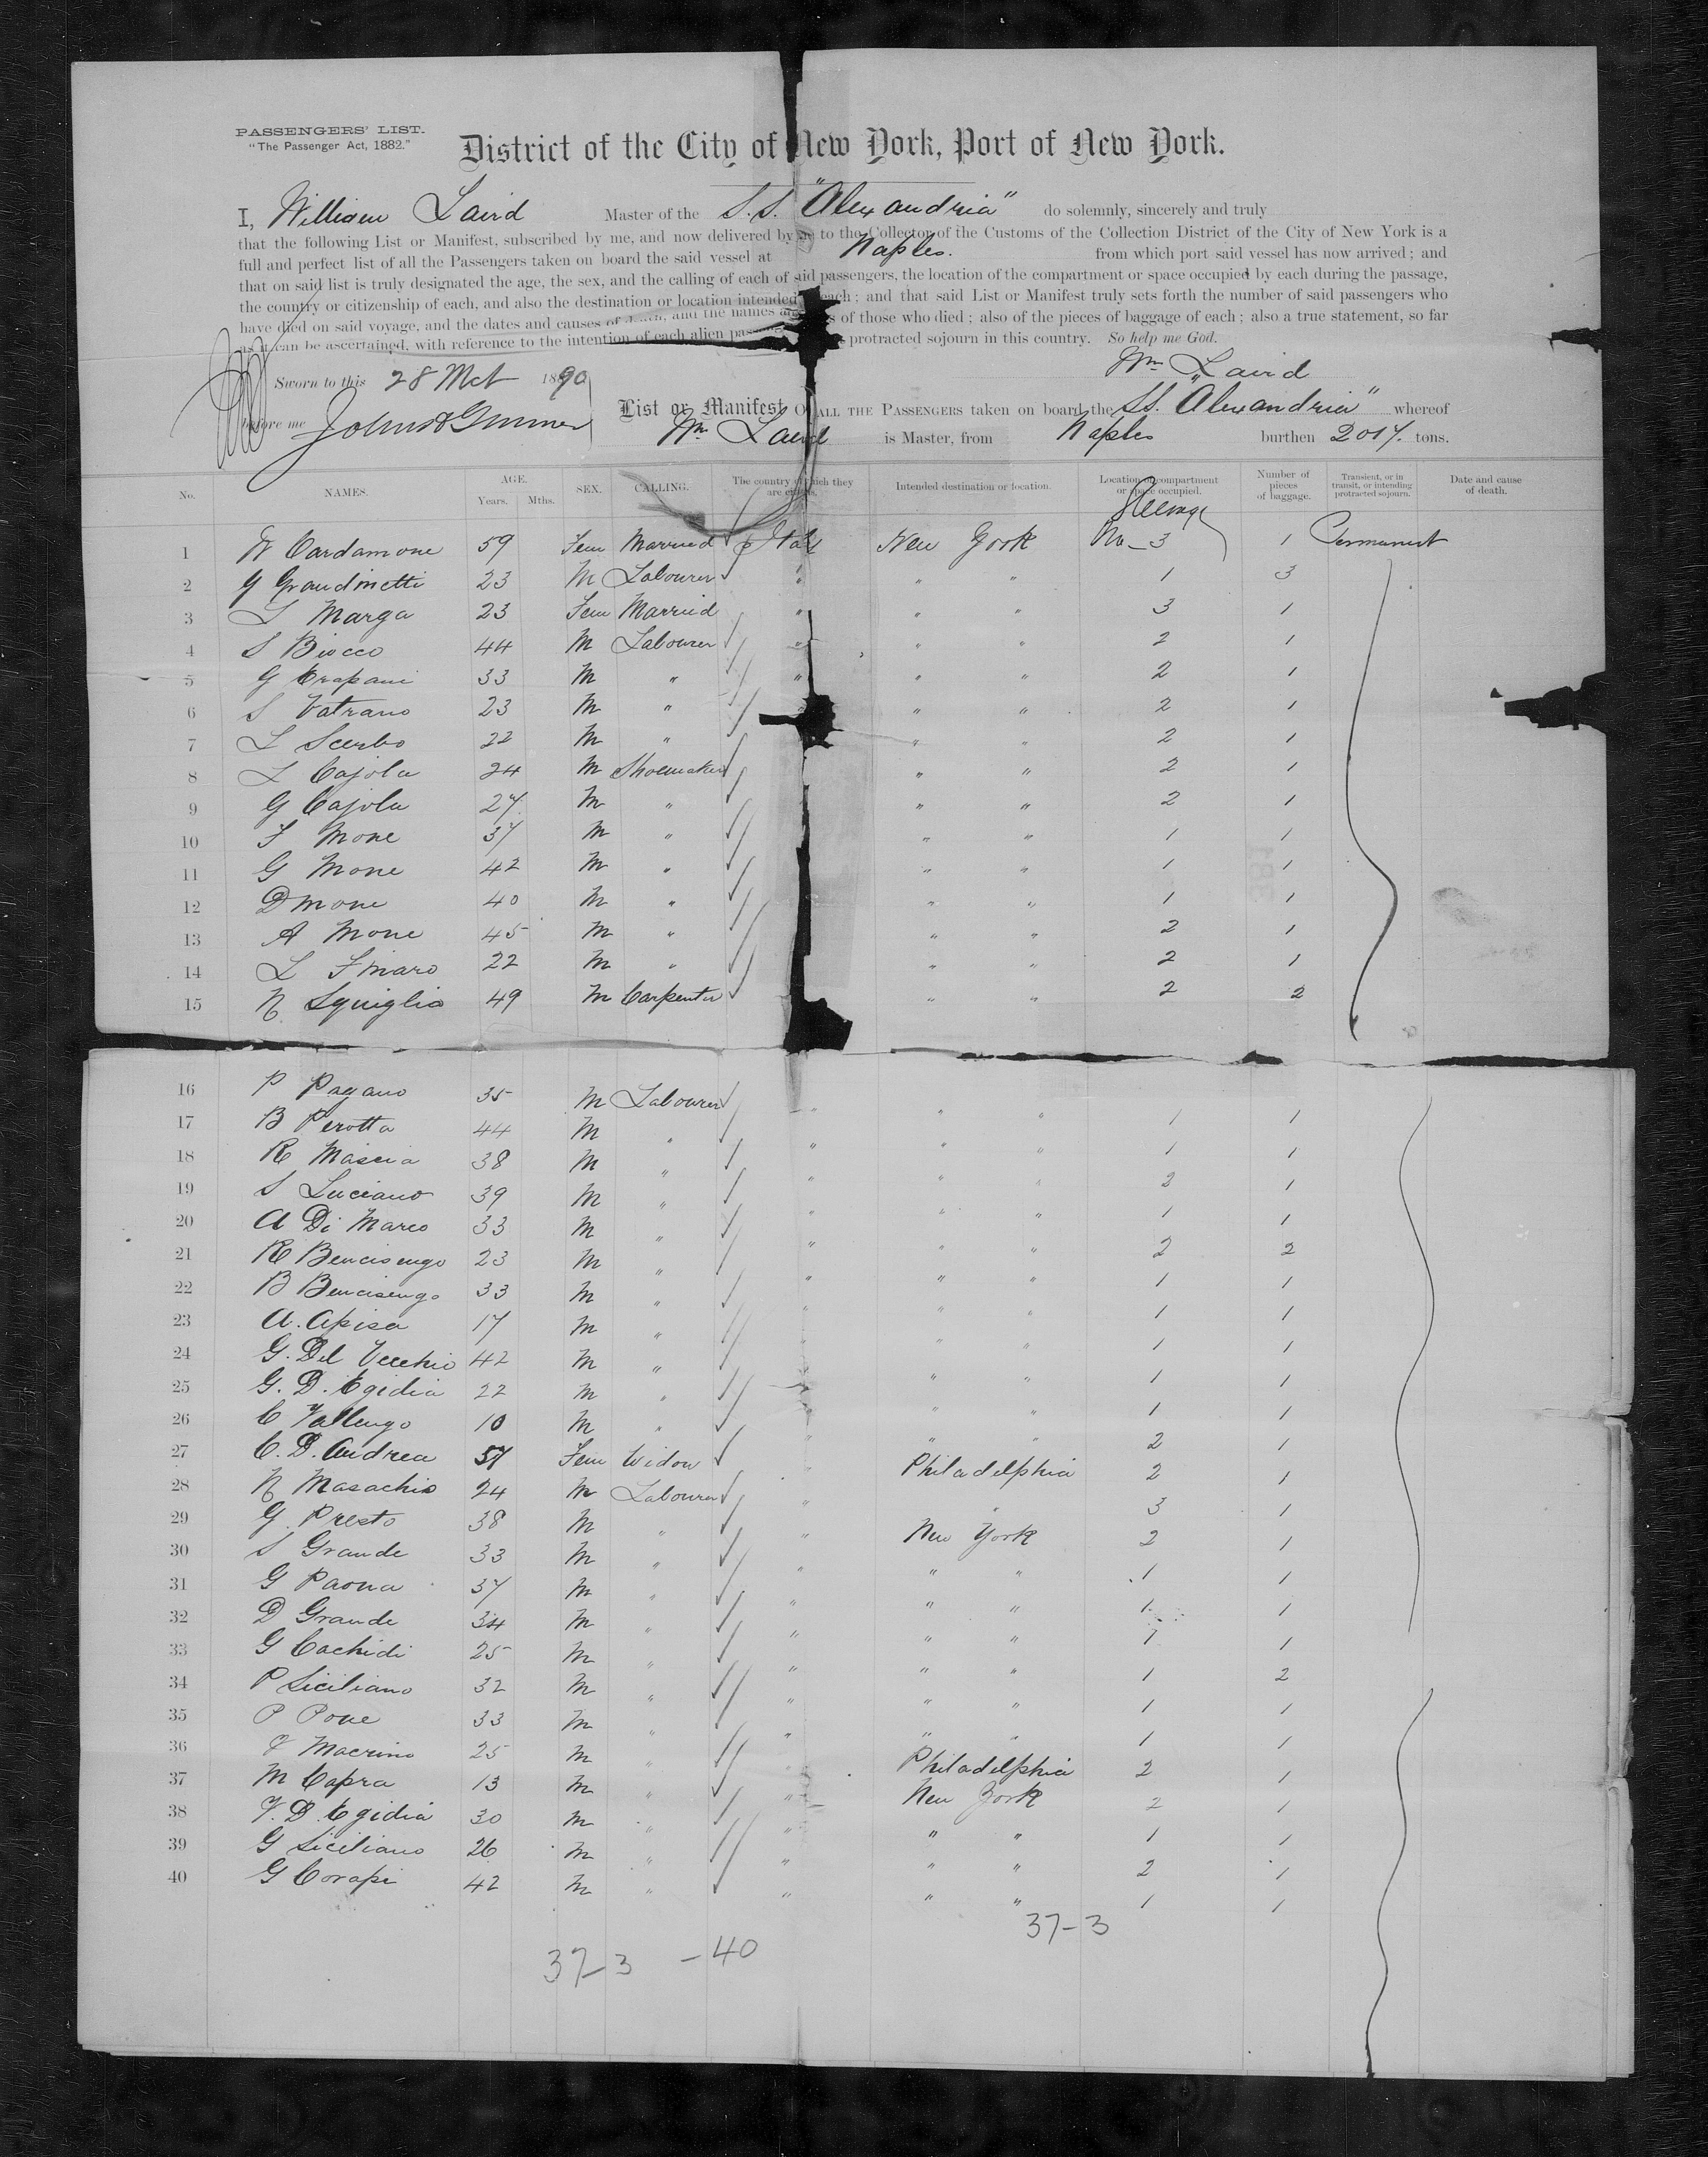 PASSENGERS' LIST.
"The Passenger Act, 1882."
District of the City of New York, Port of New York.
I, William Laird Master of the S.S. "Alexandria" do solemnly, sincerely and truly
that the following List or Manifest, subscribed by me, and now delivered by me to the Collector of the Customs of the Collection District of the City of New York is a
full and perfect list of all the Passengers taken on board the said vessel at Naples. from which port said vessel has now arrived; and
that on said list is truly designated the age, the sex, and the calling of each of said passengers, the location of the compartment or space occupied by each during the passage,
the country or citizenship of each, and also the destination or location intended each; and that said List or Manifest truly sets forth the number of said passengers who
have died on said voyage, and the dates and causes of and the names of those who died; also of the pieces of baggage of each; also a true statement, so far
as it can be ascertained, with reference to the intention of each alien protracted sojourn in this country. So help me God.
Wm Laird
Sworn to this 28 1890
before me
List or Manifest OF ALL THE PASSENGERS taken on board the SS. "Alexandria" whereof
Wm Laird is Master, from Naples burthen 2017. tons.
No. NAMES. AGE. Years. Mths. SEX. CALLING. The country of which they are citizens. Intended destination or location. Location of compartment or space occupied. Number of pieces of baggage. Transient, or in transit, or intending protracted sojourn. Date and cause of death.
Steerage
1 Cardamone 59 Fem Married Italy New York No 3 1 Permanent
2 G Grandinetti 23 M Labourer " " " 1 3
3 L Marga 23 Fem Married " " " 3 1
4 S Biocco 44 M Labourer " " " 2 1
5 G Trapani 33 M " " " " 2 1
6 S Vatrano 23 M " " " 2 1
7 L Scerbo 22 M " " " 2 1
8 L Cajola 24 M Shoemaker " " 2 1
9 G Cajola 27 M " " " 2 1
10 F Mone 37 M " " " 1 1
11 G Mone 42 M " " " 1 1
12 D Mone 40 M " " " 1 1
13 A Mone 45 M " " " 2 1
14 L 22 M " " " 2 1
15 N Squiglia 49 M Carpenter " " 2 2
16 P Pagano 35 M Labourer " " " 1 1
17 B Perotta 44 M " " " " 1 1
18 R Mascia 38 M " " " " 2 1
19 S Luciano 39 M " " " " 1 1
20 A Di Marco 33 M " " " " 2 2
21 R Bencivengo 23 M " " " " 1 1
22 B Bencivengo 33 M " " " " 1 1
23 A. Apisa 17 M " " " 1 1
24 G. Del Vecchio 42 M " " " 1 1
25 G. D. Egidia 22 M " " " 1 1
26 C Vallengo 10 M " " " " 2 1
27 C. D. Andrea 57 Fem Widow " Philadelphia 2 1
28 N Masachio 24 M Labourer " " 3 1
29 G. Presto 38 M " " New York 2 1
30 S Grande 33 M " " " " 1 1
31 G Paona 37 M " " " " 1 1
32 D Grande 34 M " " " " 1 1
33 G Cachidi 25 M " " " " 1 2
34 P Siciliano 32 M " " " " 1 1
35 P Pone 33 M " " " " 1 1
36 Macrino 25 M " " Philadelphia 2 1
37 M Capra 13 M " " New York 2 1
38 V. D. Egidia 30 M " " " " 1 1
39 G Siciliano 26 M " " " " 2 1
40 G Corapi 42 M " " " " 1 1
37-3
37-3 - 40